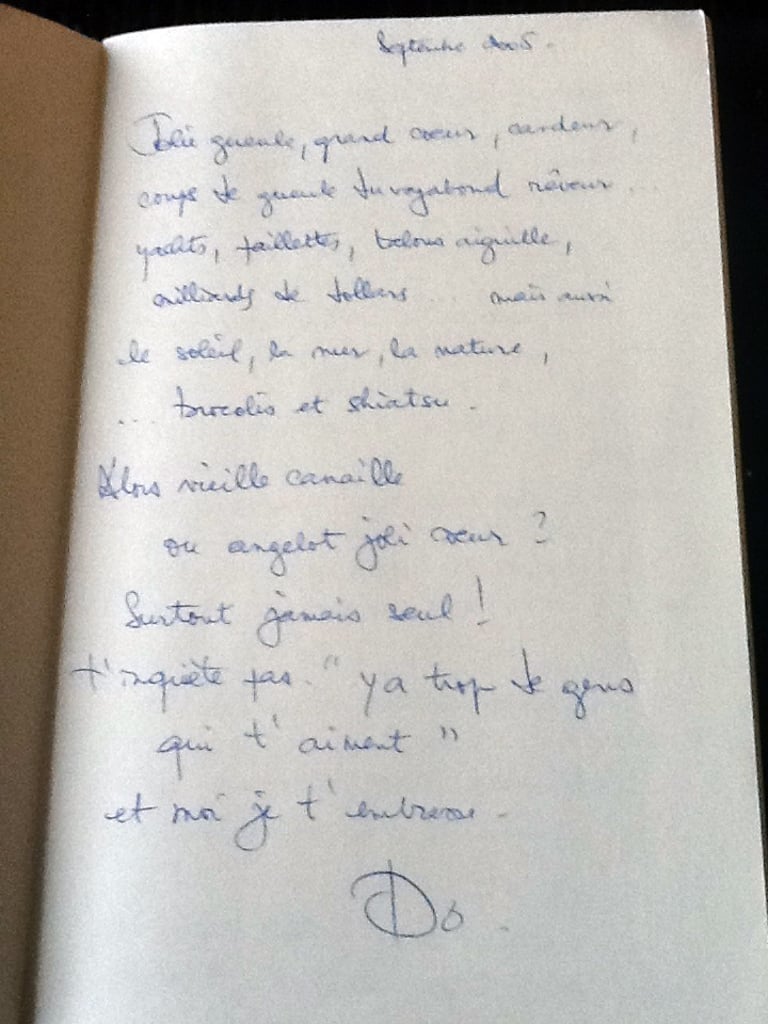 Septembre 2005.
Jolie gueule, grand coeur, candeur,
coups de gueule du vagabond rêveur...
yachts, paillettes, talons aiguille,
milliards de dollars... mais aussi
le soleil, la mer, la nature,
... brocolis et shiatsu.
Alors vieille canaille
ou angelot joli coeur ?
Surtout jamais seul !
t'inquiète pas. " ya trop de gens
qui t'aiment "
et moi je t'embrasse.
Do.